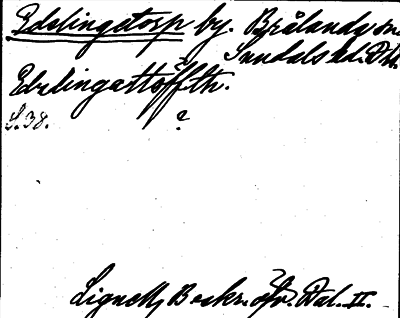 Edelingetorp by. Brålanda sn.
Sundals hd. Dld.
Edelingattöffth.
S. 38. ?
Lignell, Beskr. öfv. Dal. II.